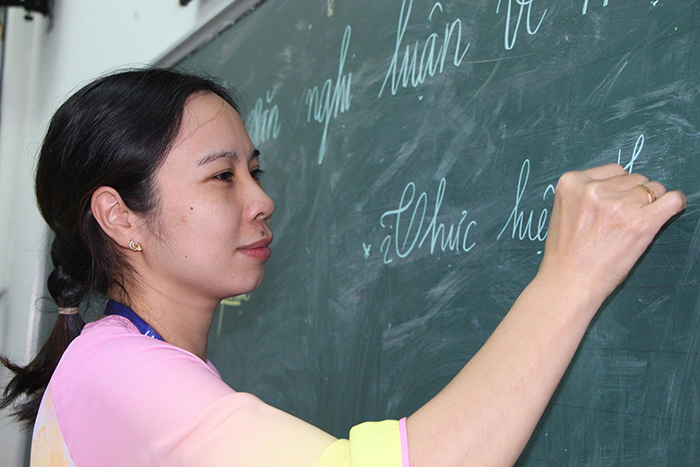 văn nghị luận về
* Thực hiện